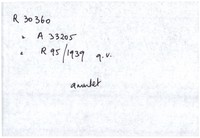 R 30360
" A 33205
" R 95/1939 q.v.
amulet